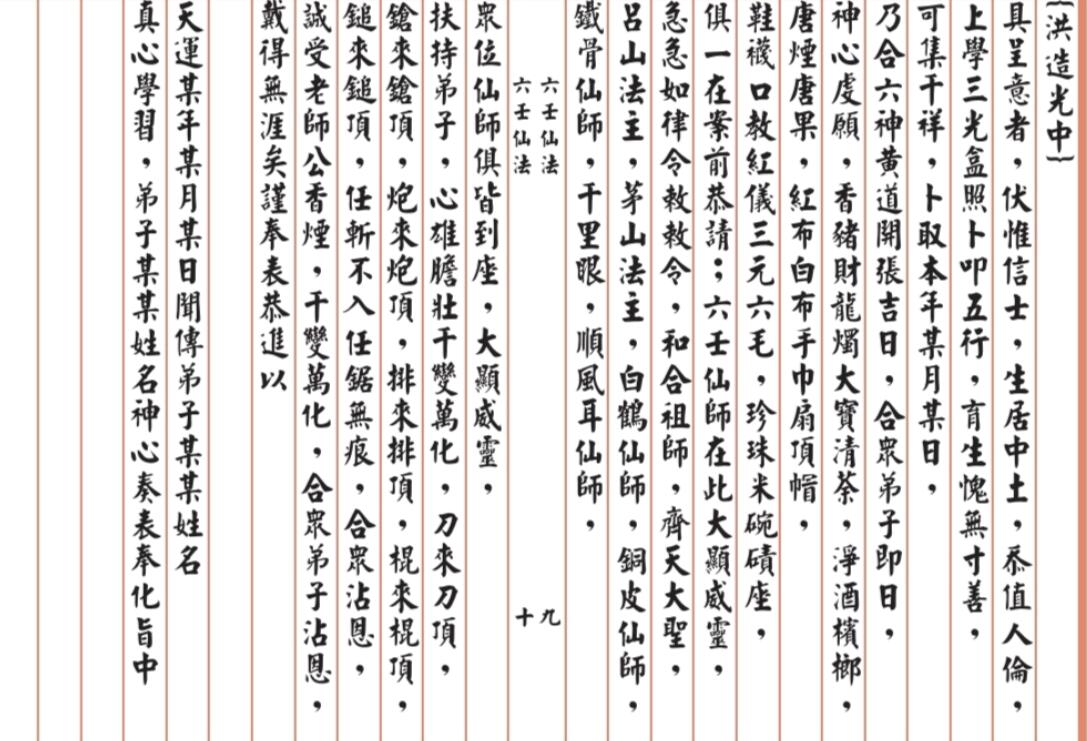 {洪造光中}
具呈意者，伏惟信士，生居中土，忝值人倫，
上學三光盒照卜叩五行，育生愧無寸善，
可集千祥，卜取本年某月某日，
乃合六神黃道開張吉日，合眾弟子即日，
神心虔願，香豬財龍燭大寶清茶，淨酒檳榔，
唐煙唐果，紅布白布手巾扇頂帽，
鞋襪口教紅儀三元六毛，珍珠米碗磧座，
俱一在案前恭請；六壬仙師在此大顯威靈，
急急如律令敕敕令，和合祖師，齊天大聖，
呂山法主，茅山法主，白鶴仙師，銅皮仙師，
鐵骨仙師，千里眼，順風耳仙師，
六壬仙法
九
六壬仙法
十
眾位仙師俱皆到座，大顯威靈，
扶持弟子，心雄膽壯千變萬化，刀來刀頂，
鎗來鎗頂，炮來炮頂，排來排頂，棍來棍頂，
鎚來鎚頂，任斬不入任鋸無痕，合眾沾恩，
誠受老師公香煙，千變萬化，合眾弟子沾恩，
戴得無涯矣謹奉表恭進以
天運某年某月某日聞傳弟子某某姓名
真心學習，弟子某某姓名神心奏表奉化旨中